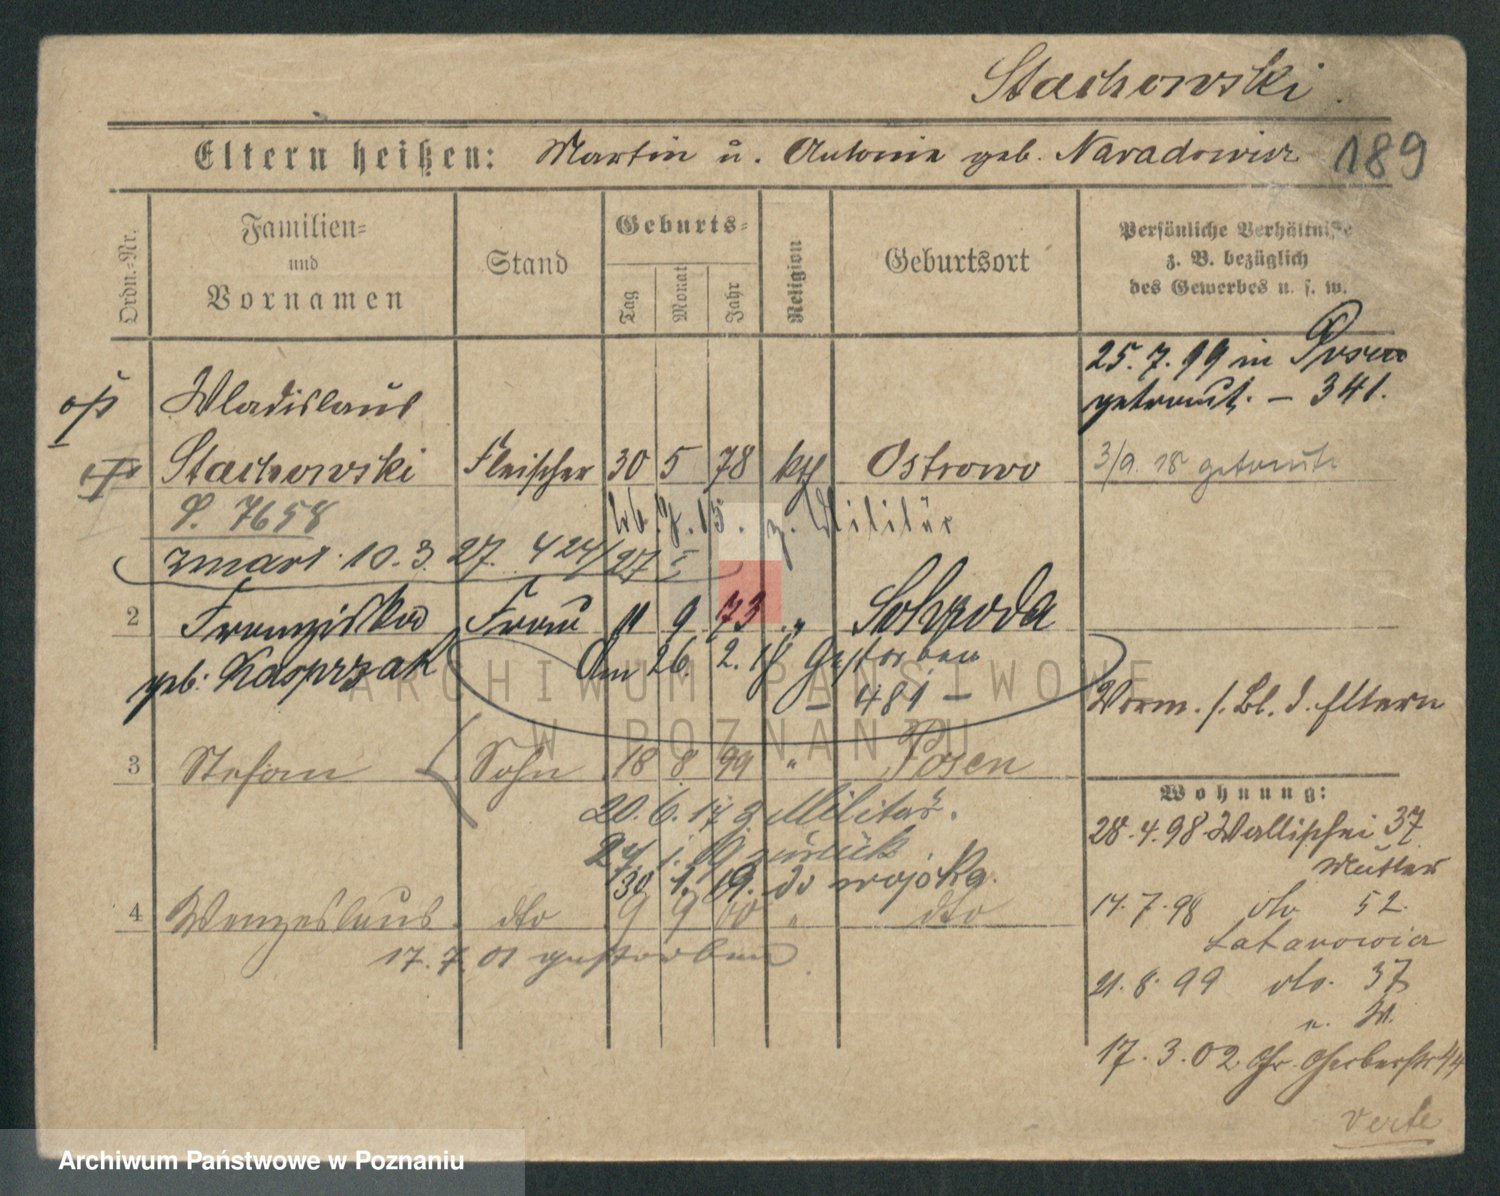 Stachowski
Eltern heißen: Martin u. Antonie geb. Naradowicz 189
Ordn.-Nr.
Familien-
und
Vornamen
Stand
Geburts-
Tag
Monat
Jahr
Religion
Geburtsort
Persönliche Verhältnisse
z. B. bezüglich
des Gewerbes u. s. w.
25.7.99 in Posen
getraut. – 341.
Wladislaus
Stachowski Fleischer 30 5 78 kth Ostrowo
3/9. 18 getraut
7658
26.7.15. z. Militär
zmarł 10.3.27. 424/27 I
2 Franziska Frau 11 9 73 " Schroda
geb. Kasprzak
Am 26. 2. 18 gestorben
– 481 –
Vorm. s. Bl. d. Eltern
3 Stefan Sohn 18 8 99 " Posen
20.6.17 z Militär.
zurück
30 1. 19. do wojska.
4 Wenzeslaus dto 9 9 00 " dto
17.7.01 gestorben
Wohnung:
28.4.98 Wallischei 37
Mutter
14.7.98 dto 52
Latanowicz
21.8.99 dto. 37
17.3.02 Gr. Gerberstr
verte
ARCHIWUM PAŃSTWOWE
W POZNANIU
Archiwum Państwowe w Poznaniu